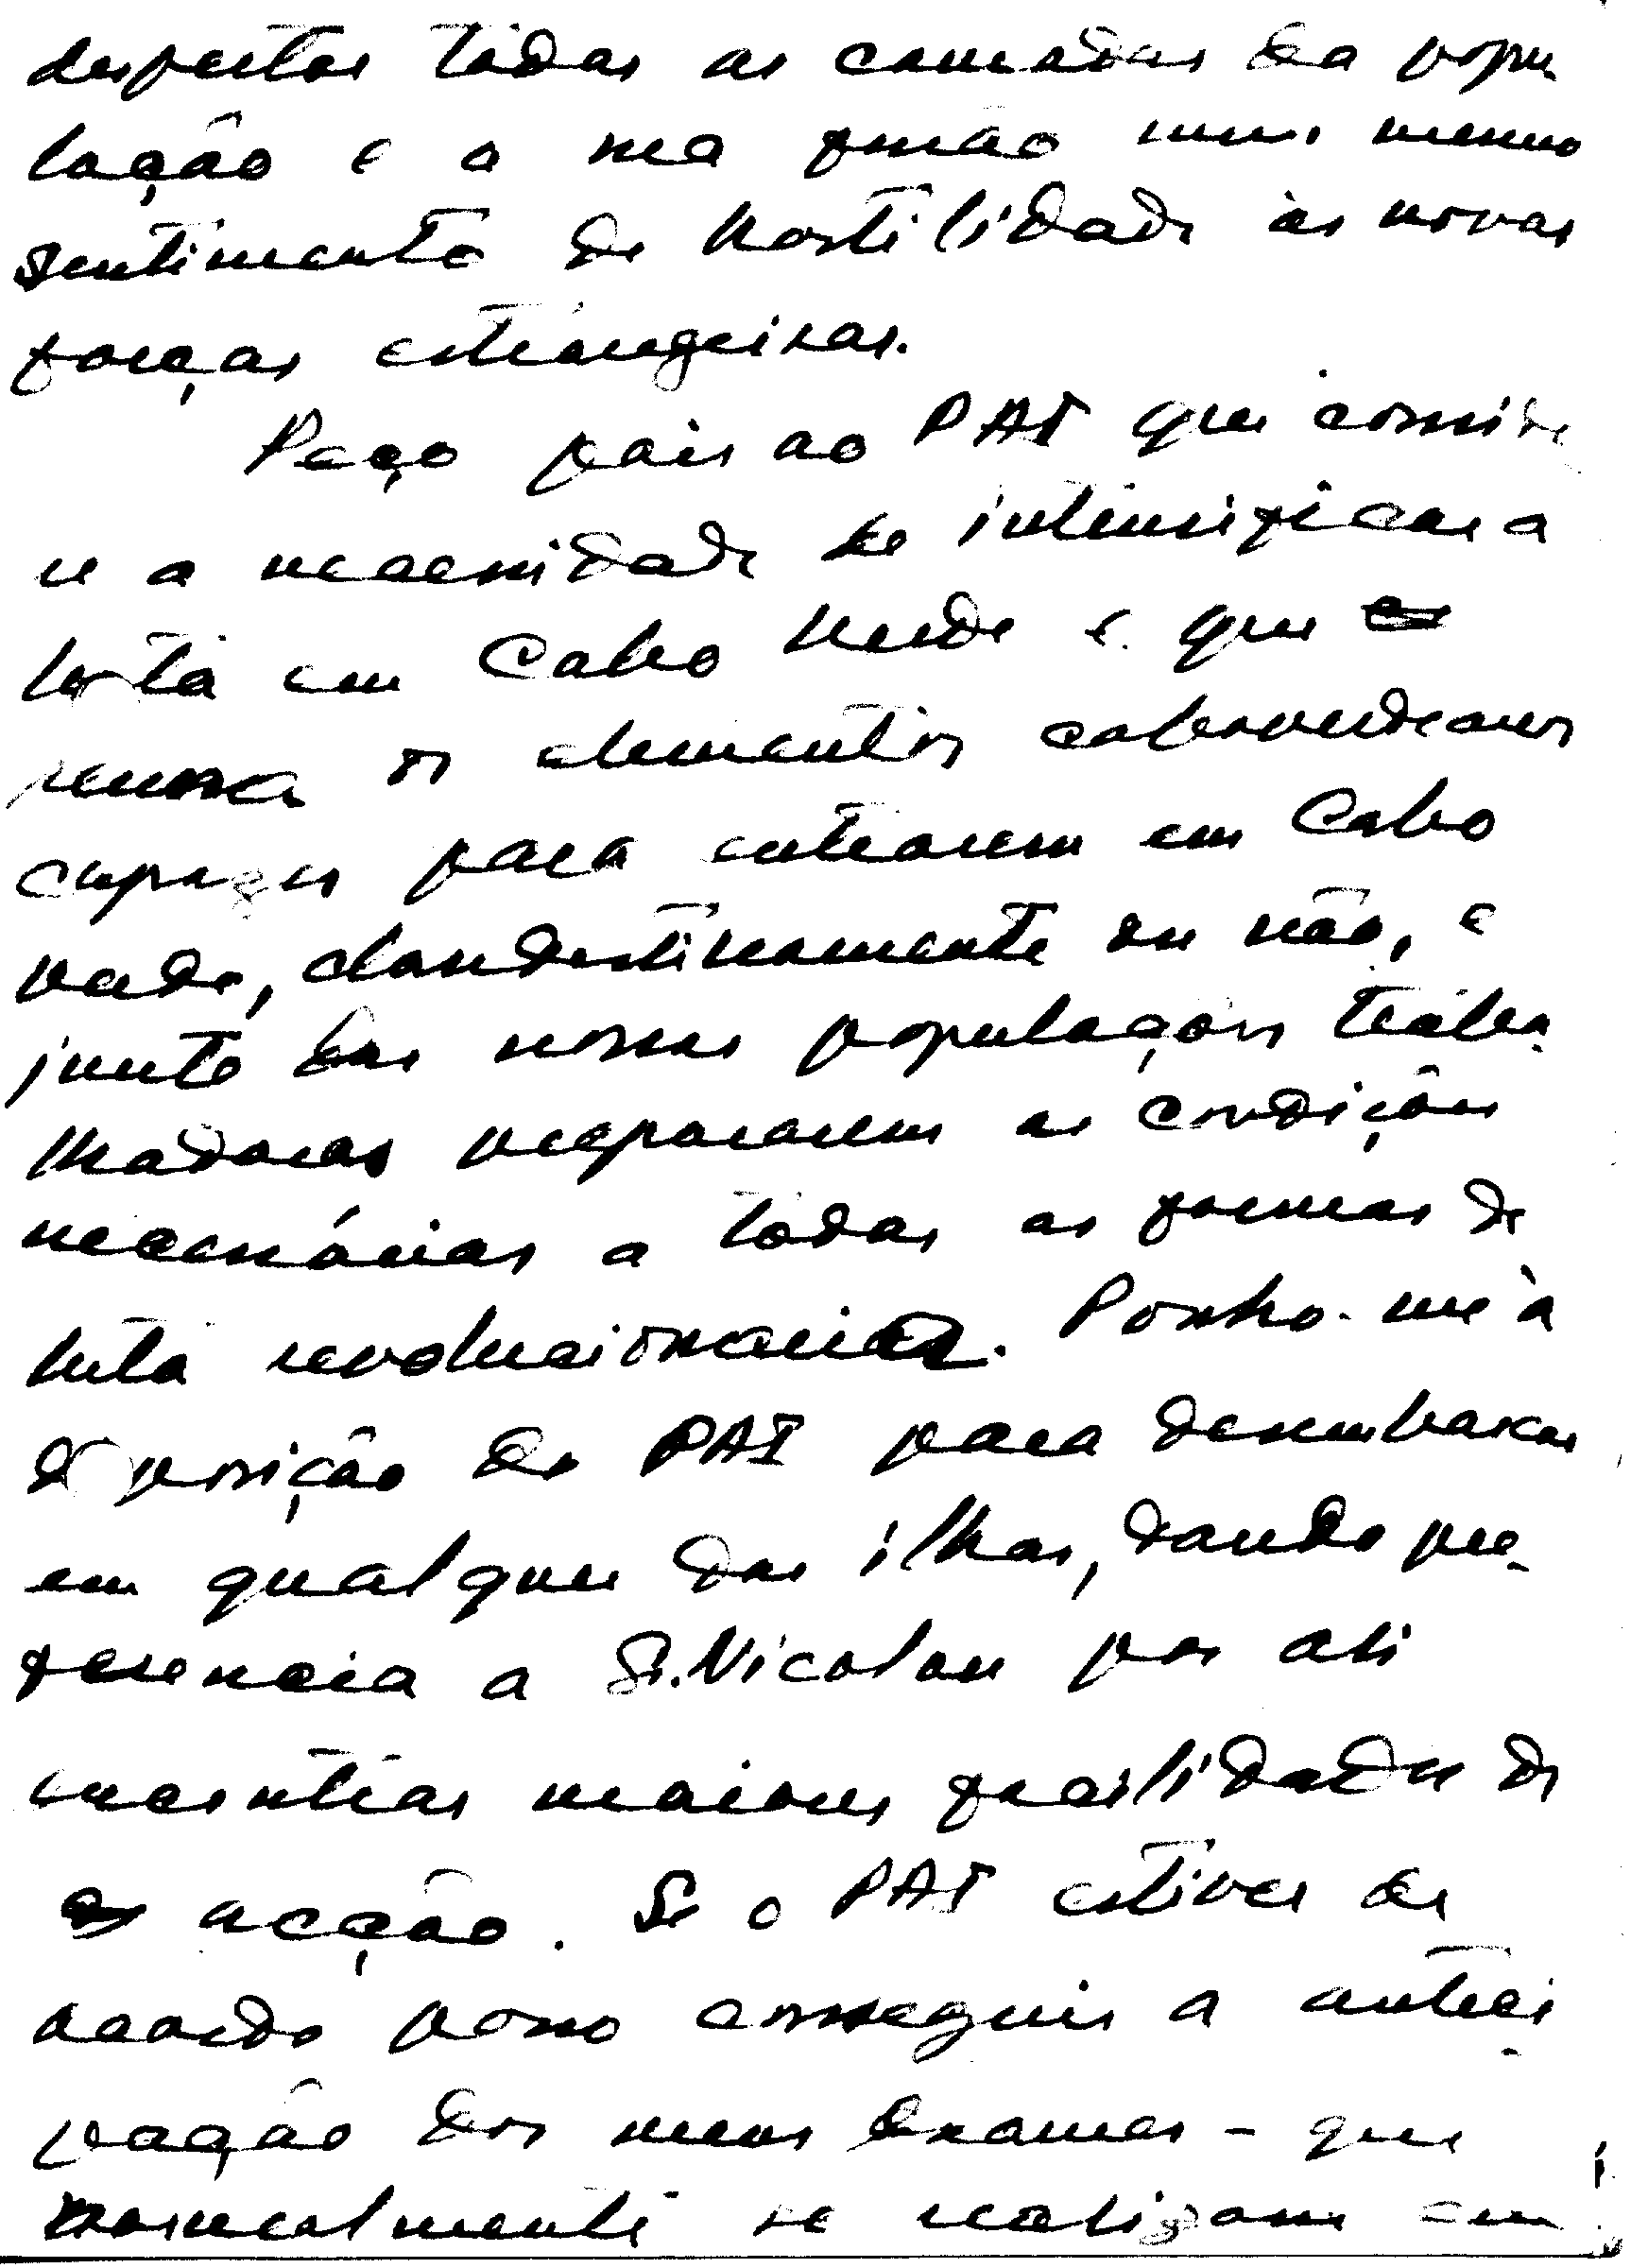 despertar todas as camadas da popu
lação e a sua fusão num mesmo
sentimento de hostilidade às novas
forças estrangeiras.
Peço pois ao PAI que conside
re a necessidade de intensificar a
luta em Cabo Verde e que
reuna os elementos caboverdeanos
capazes para entrarem em Cabo
Verde, clandestinamente ou não, e
junto das nossas populações traba
lhadoras prepararem as condições
necessárias a todas as formas de
luta revolucionária. Ponho-me à
disposição do PAI para desembarcar
em qualquer das ilhas, dando pre-
ferencia a S. Nicolau por ali
encontrar maiores facilidades de
acção. Se o PAI estiver de
acordo posso conseguir a anteci
pação dos meus exames - que
normalmente se realizam em